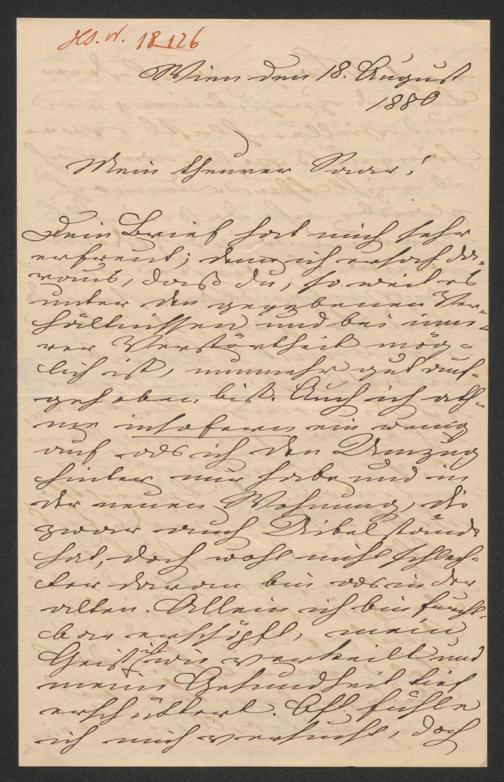 Hs. N. 18.126
Wien den 18. August
1880
Mein theurer Saar!
Dein Brief hat mich sehr
erfreut; denn ich ersah da-
raus, daß du, so weit es
unter den gegebenen Ver-
hältnissen und bei inne-
rer Verstörtheit mög-
lich ist, nunmehr gut auf-
gehoben bist. Auch ich ath-
me insofern ein wenig
auf als ich den Umzug
hinter mir habe und in
der neuen Wohnung, die
zwar auch Übelstände
hat, doch wohl nicht schlech-
ter daran bin als in der
alten. Allein ich bin furcht-
bar erschöpft, mein
Geist ist wie verkeilt und
meine Gesundheit tief
erschüttert. Oft fühle
ich mich versucht, doch